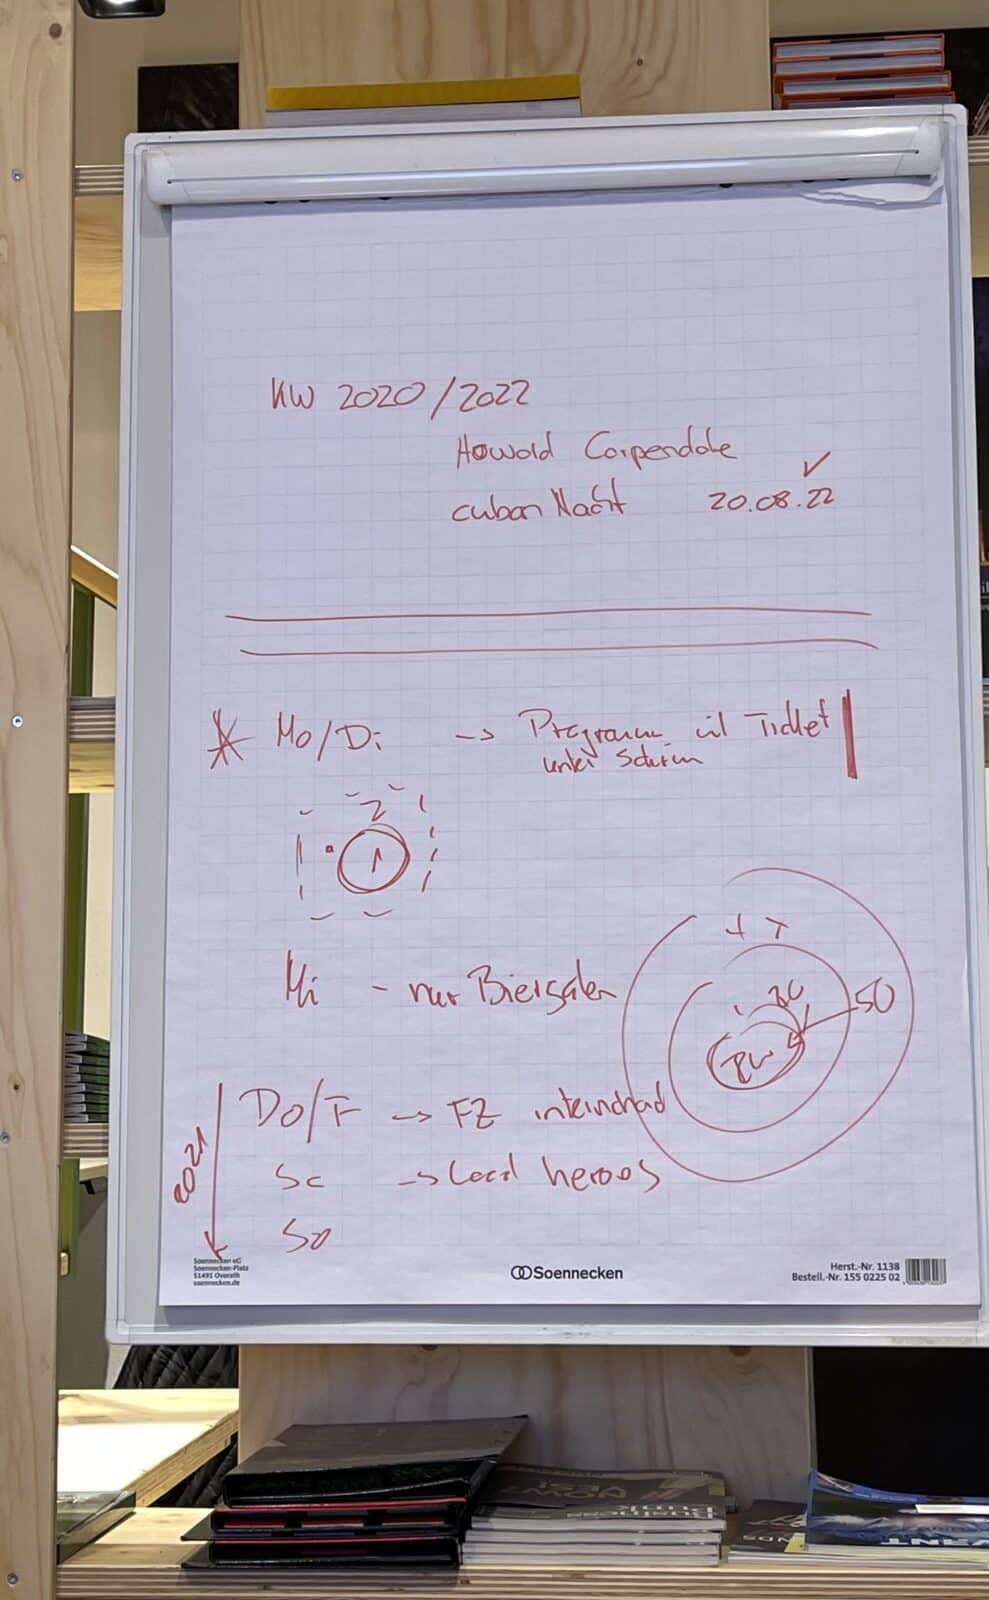 KW 2020/2022
Howald Carpendale
cuban Nacht 20.08.22
Mo/Di -> Programm mit Ticket
unter Schirm
2
1
Mi - nur Biergarten
50
Do/F -> FZ
Sa -> Local heroes
So
2021
Soennecken eG
Soennecken-Platz
51491 Overath
soennecken.de
Soennecken
Herst.-Nr. 1138
Bestell.-Nr. 155 0225 02
Business
Punk